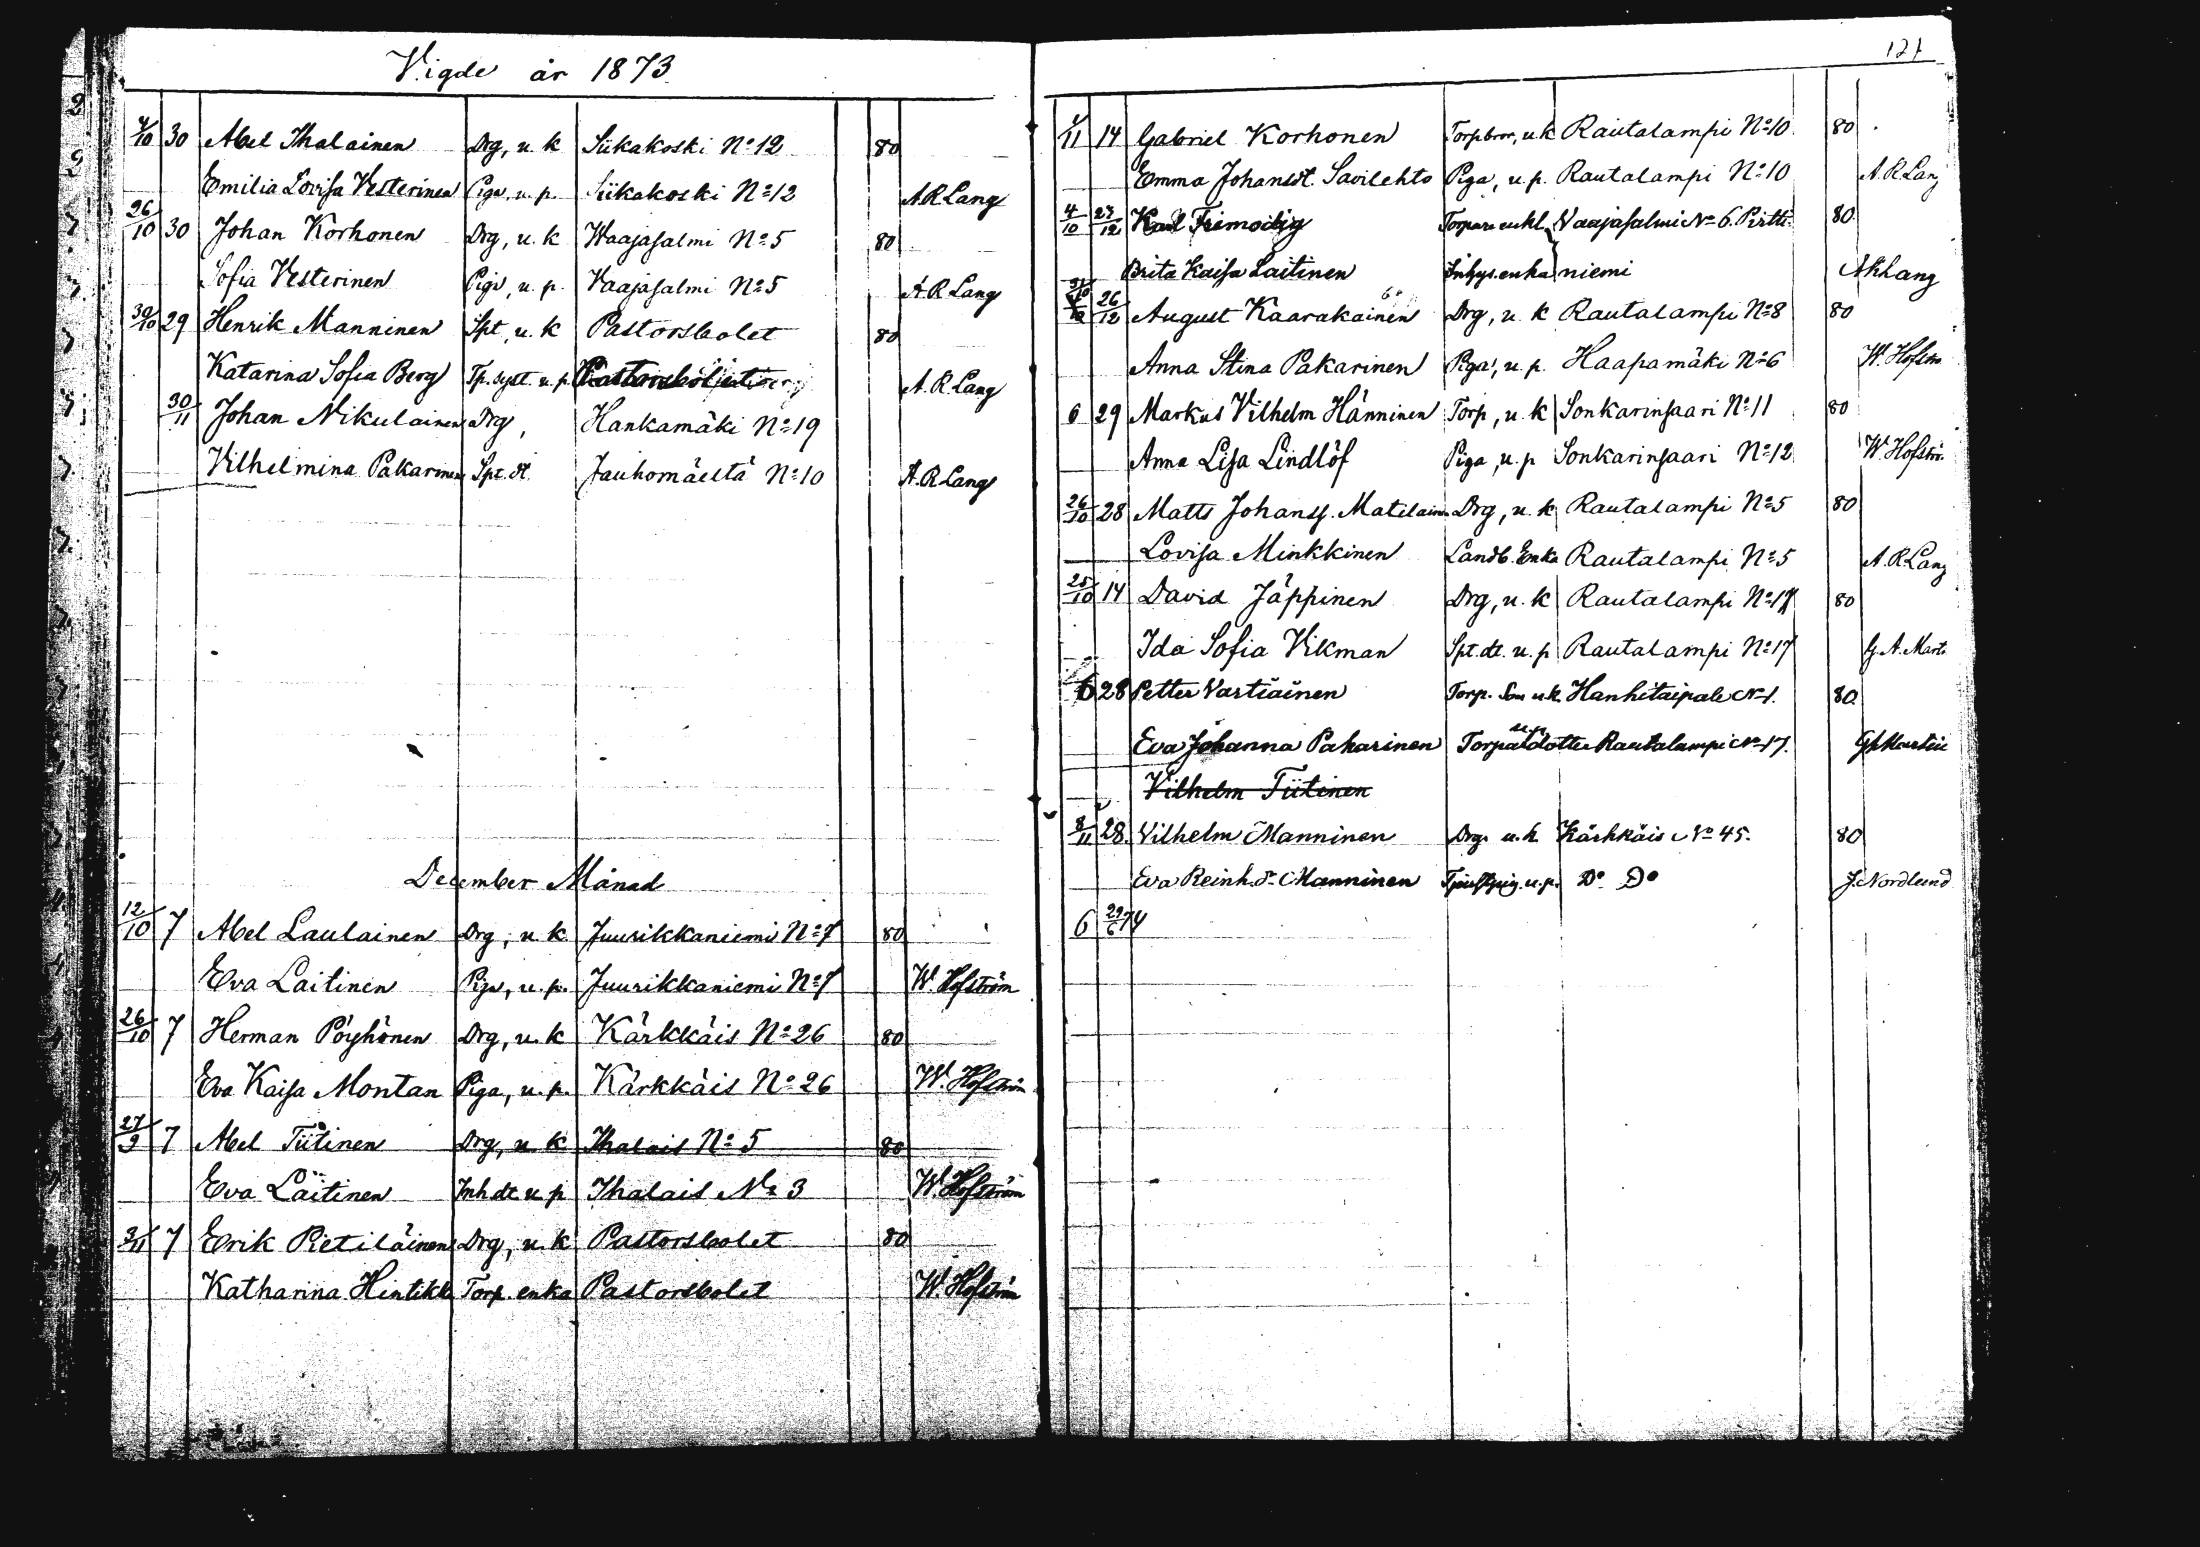 Vigde år 1873
4/10 30 Abel Ihalainen Drg, u. k Siikakoski No 12 80
Emilia Lovisa Vesterinen Piga, u. p. Siikakoski No 12 A R Lang
26/10 30 Johan Korhonen Drg, u. k Waajasalmi No 5 80
Sofia Vesterinen Piga, u. p. Vaajasalmi No 5 A R Lang
30/10 29 Henrik Manninen Spt, u. k Pastorsbolet 80
Katarina Sofia Berg Tp. syst. u. p. A. R Lang
30/11 Johan Nikulainen Drg, Hankamäki No 19
Vilhelmina Pakarinen Spt. dt Jauhomäeltä No 10 A. R Lang
December Månad
12/10 7 Abel Laulainen Drg, u. k. Juurikkaniemi No 7 80
Eva Laitinen Piga, u. p. Juurikkaniemi No 7 W. Hofström
26/10 7 Herman Pöyhönen Drg, u. k Kärkkäis No 26 80
Eva Kaisa Montan Piga, u. p. Kärkkäis No 26 W. Hofström
27/9 7 Abel Tiitinen Drg, u. k Ihalais No 5 80
Eva Laitinen Inh dt u. p Ihalais No 3 W. Hofström
2/11 7 Erik Pietiläinen Drg, u. k Pastorsbolet 80
Katharina Hintikka Torp. enka Pastorsbolet W. Hofström
121
11 14 Gabriel Korhonen Torp.bror, u. k Rautalampi No 10 80
Emma Johansdt. Savilehto Piga, u. p. Rautalampi No 10 A. R Lang
4/10 27/12 Karl Frimodig Torpare enkl. Vaajasalmi No 6. Pirtti 80
Brita Kaisa Laitinen Inhys. enka niemi A R Lang
26/12 August Kaarakainen Drg, u. k Rautalampi No 8 80
Anna Stina Pakarinen Piga, u. p. Haapamäki No 6 W. Hofström
6 29 Markus Vilhelm Hänninen Torp, u. k Sonkarinsaari No 11 80
Anna Lisa Lindlöf Piga, u. p Sonkarinsaari No 12 W. Hofström
26/10 28 Matts Johanss. Matilainen Drg, u. k Rautalampi No 5 80
Lovisa Minkkinen Landb. Enka Rautalampi No 5 A. R Lang
25/10 14 David Jäppinen Drg, u. k Rautalampi No 17 80
Ida Sofia Vikman Spt. dt. u. p Rautalampi No 17 G. A. Martin
6 28 Petter Vartiäinen Torp. Son u. k. Hanhitaipale No 1. 80
Eva Johanna Pakarinen Torparedotter u. p. Rautalampi No 17. G A Martin
Vilhelm Tiitinen
8/11 28. Vilhelm Manninen Drg. u. k. Kärkkäis No 45. 80
Eva Reinh. Manninen u. p. Do Do J. Nordlund
6 29/6 74